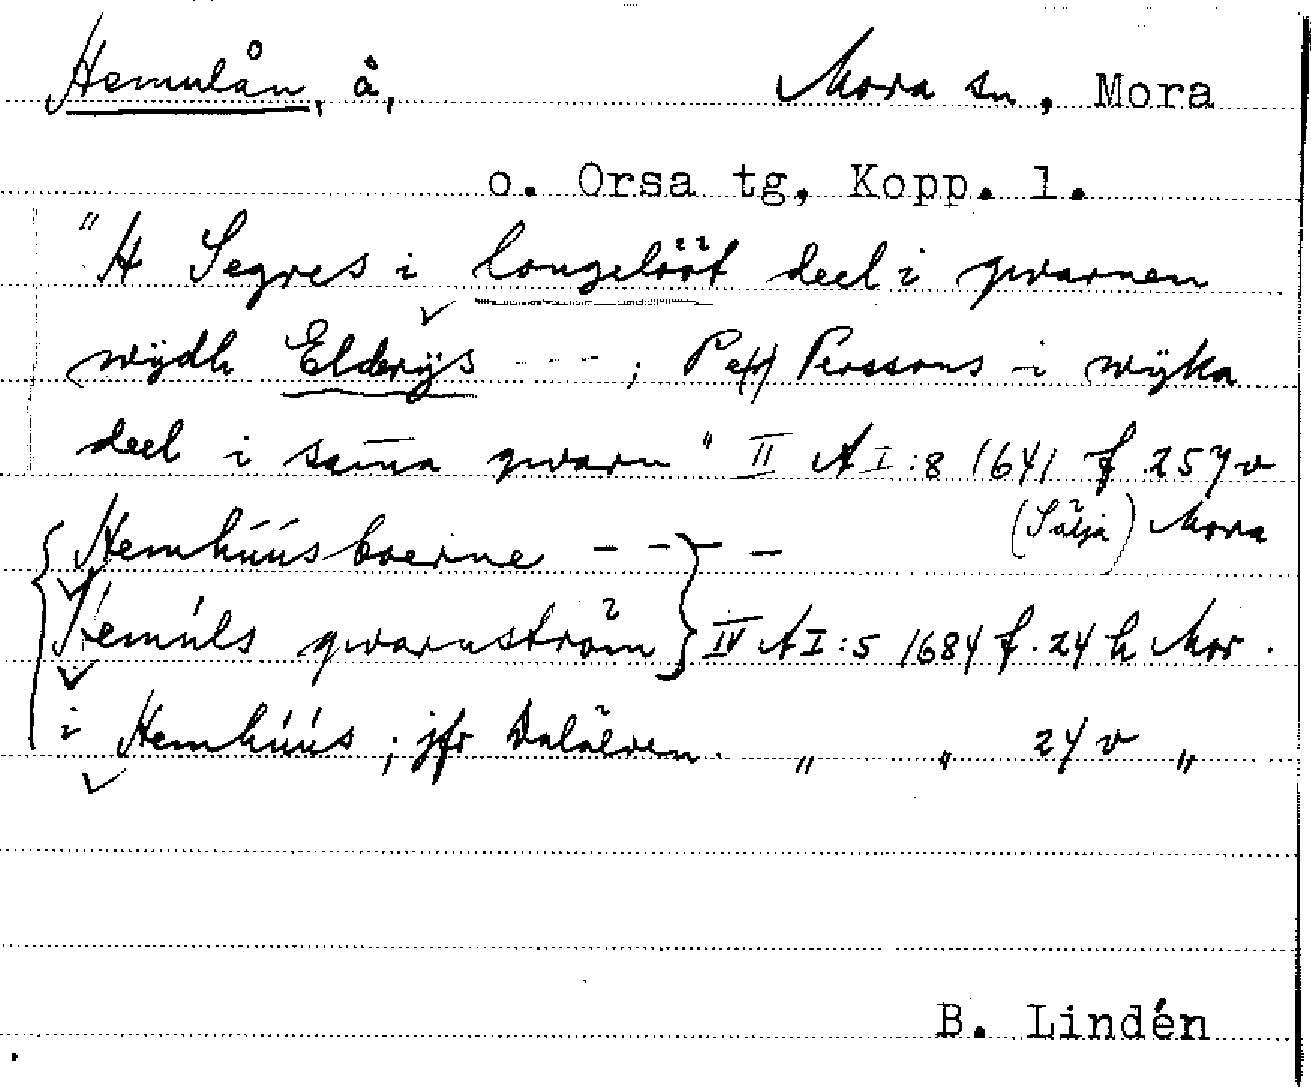 Hemulån, å, Mora sn, Mora
o. Orsa tg, Kopp. l.
"H Segres i longelööt deel i qwarnen
wÿdh Elderÿs - - - ; Pe(r) Perssons i wÿka
deel i sam̅a qwarn" II A I:8 1641 f 257 v
(Sälja) Mora
Hemhúúsboerne - - - -
Hemúls qwarnström } IV A I:5 1684 f. 24 h Mor.
i Hemhúús ; jfr Dalälven. " " 24 v "
B. Lindén